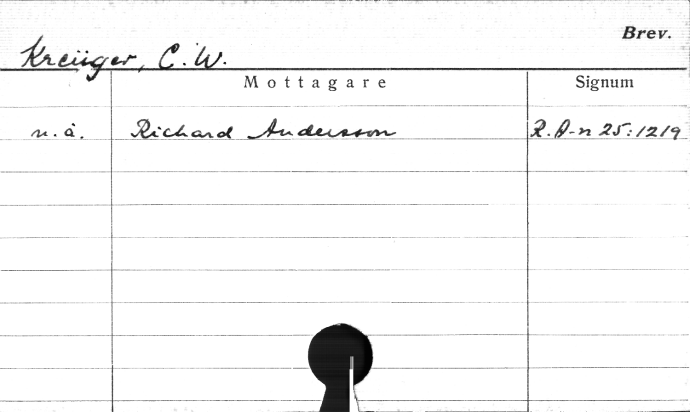 Brev.
Kreüger, C.W.
Mottagare Signum
n.å. Richard Andersson R.A-n 25:1219